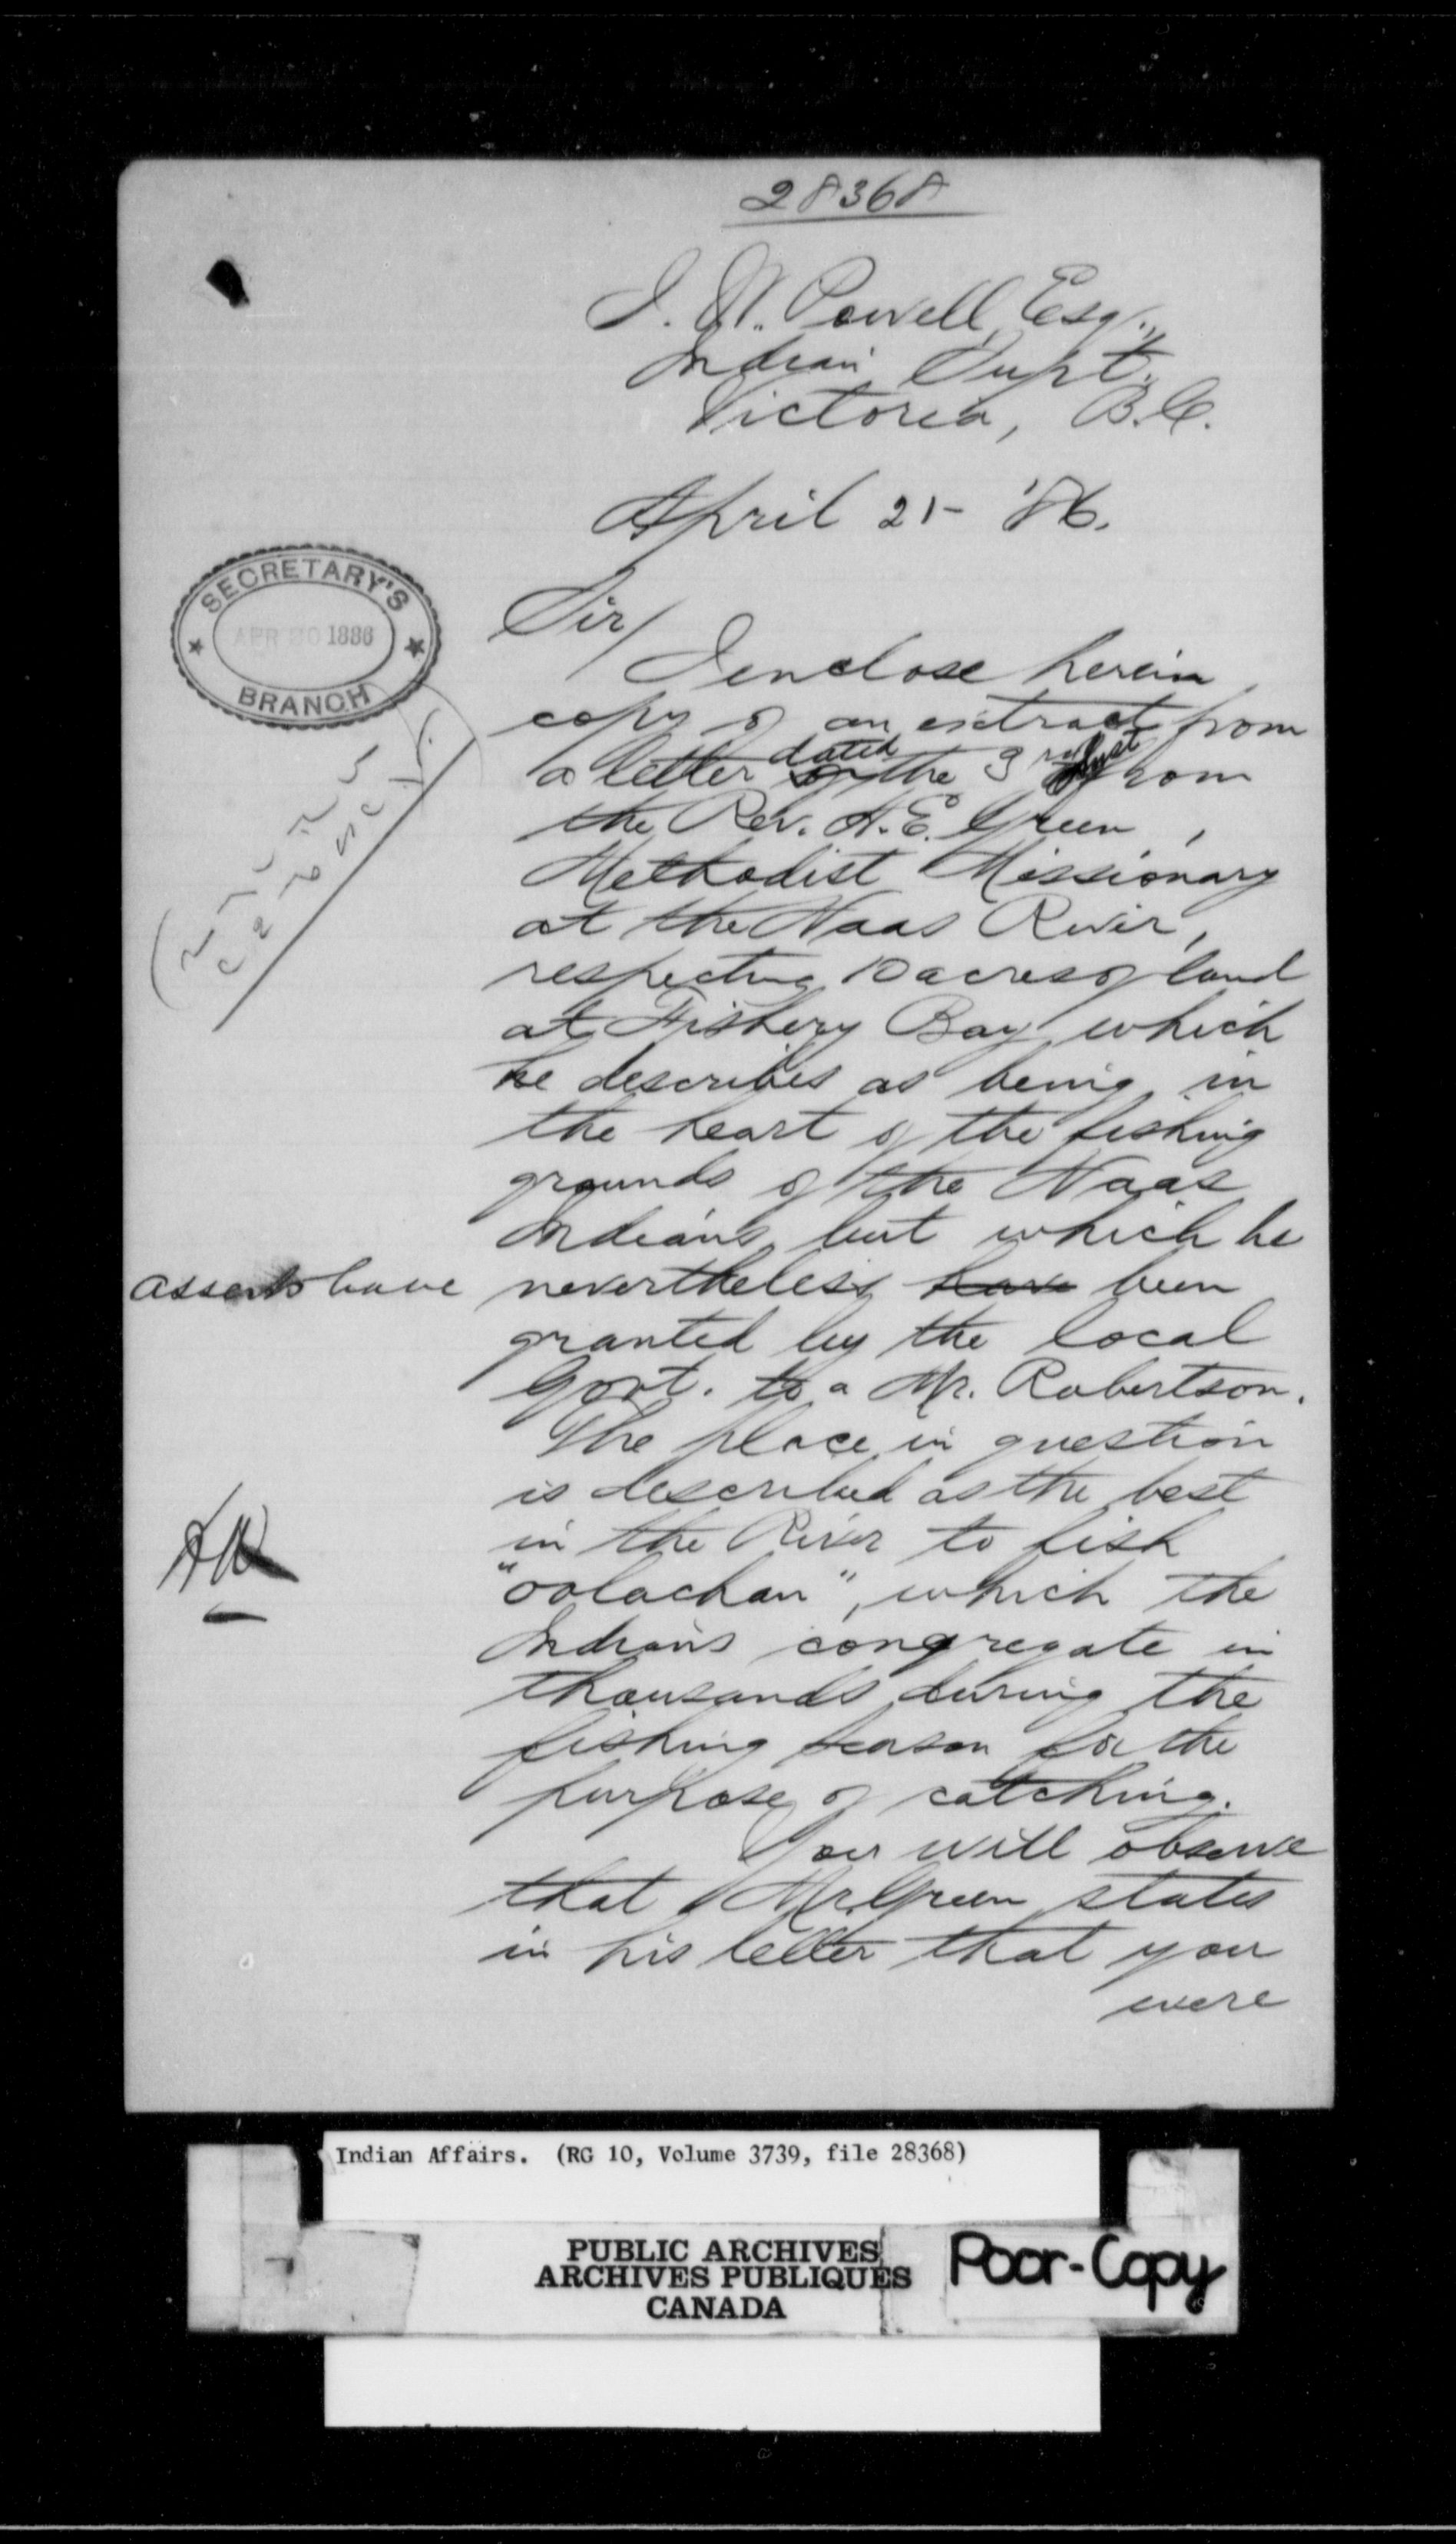 28368
I. W. Powell, Esq.,
Indian Supt.
Victoria, B.C.
April 21- '86.
SECRETARY'S
APR 20 1886
BRANCH
Sir/
I enclose herein
copy of an extract from
dated
a letter of the 3rd from
the Rev. A. E. Green,
Methodist Missionary
at the Naas River,
respecting 10 acres of land
at Fishery Bay which
he describes as being in
the heart of the fishing
grounds of the Naas
Indians, but which he
asserts have nevertheless have been
granted by the local
Govt. to a Mr. Robertson.
The place in question
is described as the best
in the River to fish
"oolachan", which the
Indians congregate in
thousands during the
fishing season for the
purpose of catching.
You will observe
that Mr. Green states
in his letter that you
were
Indian Affairs. (RG 10, Volume 3739, file 28368)
PUBLIC ARCHIVES
ARCHIVES PUBLIQUES
CANADA
Poor-Copy